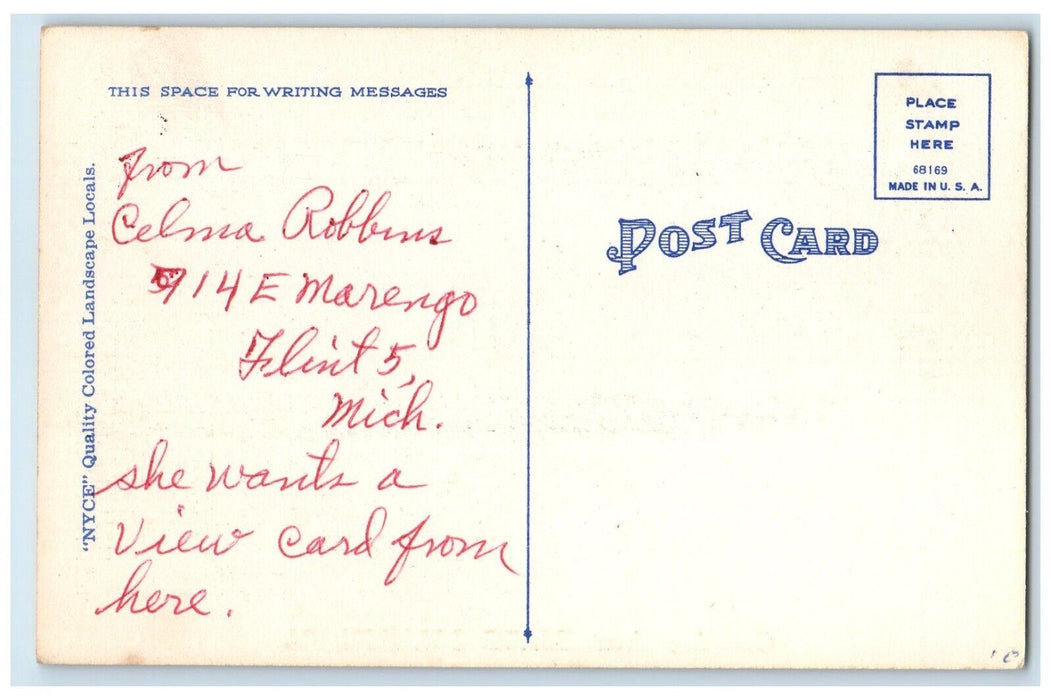 THIS SPACE FOR WRITING MESSAGES
from
Celma Robbins
914 E Marengo
Flint 5,
Mich.
she wants a
View card from
here.
"NYCE" Quality Colored Landscape Locals.
POST CARD
PLACE
STAMP
HERE
68169
MADE IN U. S. A.